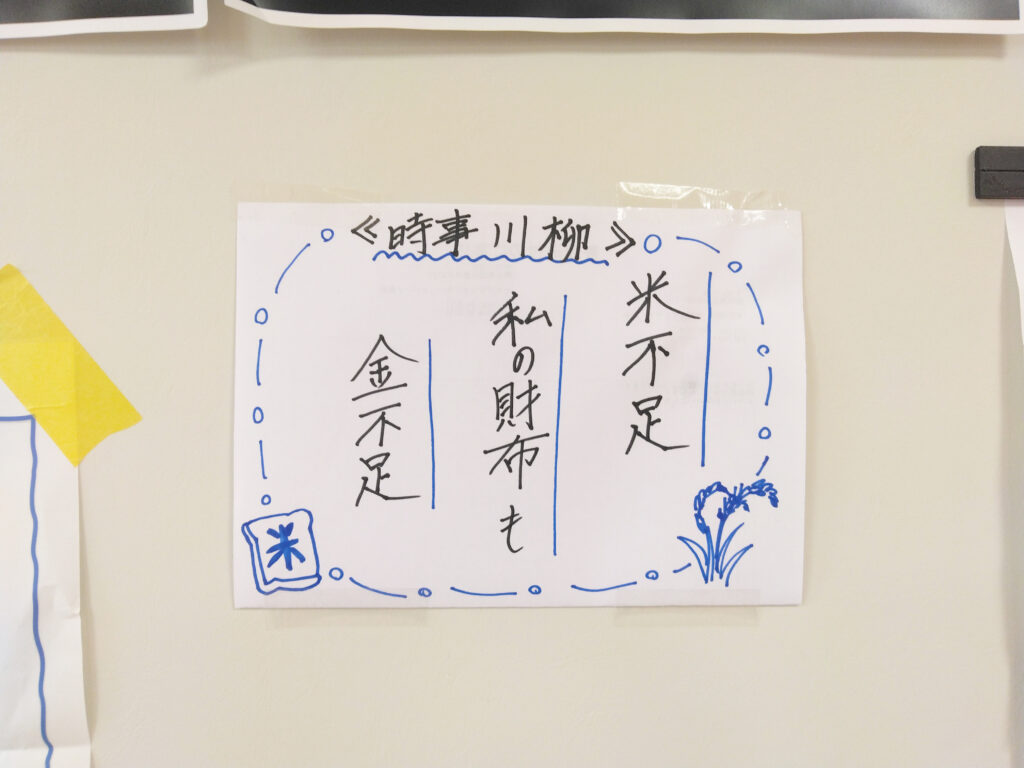 ≪時事川柳≫
米不足
私の財布も
金不足
米